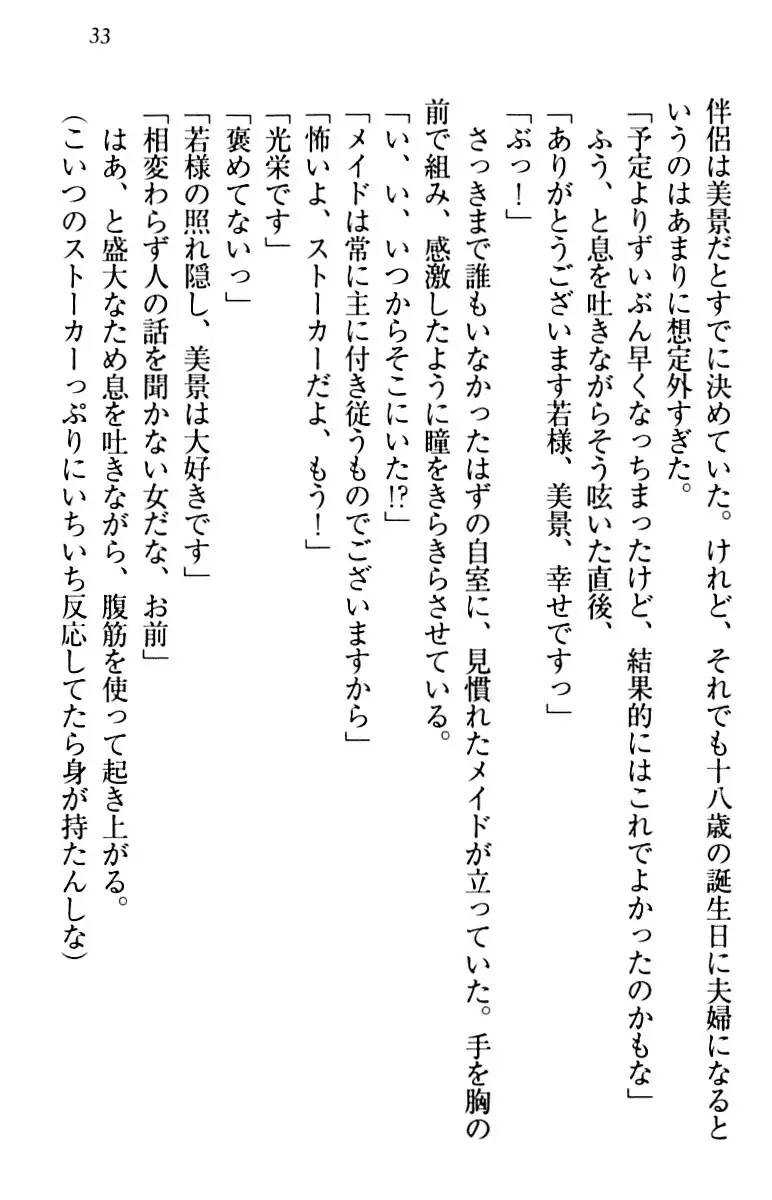 33
伴侶は美景だとすでに決めていた。けれど、それでも十八歳の誕生日に夫婦になると
いうのはあまりに想定外すぎた。
「予定よりずいぶん早くなっちまったけど、結果的にはこれでよかったのかもな」
ふう、と息を吐きながらそう呟いた直後、
「ありがとうございます若様、美景、幸せですっ」
「ぶっ！」
さっきまで誰もいなかったはずの自室に、見慣れたメイドが立っていた。手を胸の
前で組み、感激したように瞳をきらきらさせている。
「い、い、いつからそこにいた!?」
「メイドは常に主に付き従うものでございますから」
「怖いよ、ストーカーだよ、もう！」
「光栄です」
「褒めてないっ」
「若様の照れ隠し、美景は大好きです」
「相変わらず人の話を聞かない女だな、お前」
はあ、と盛大なため息を吐きながら、腹筋を使って起き上がる。
（こいつのストーカーっぷりにいちいち反応してたら身が持たんしな）